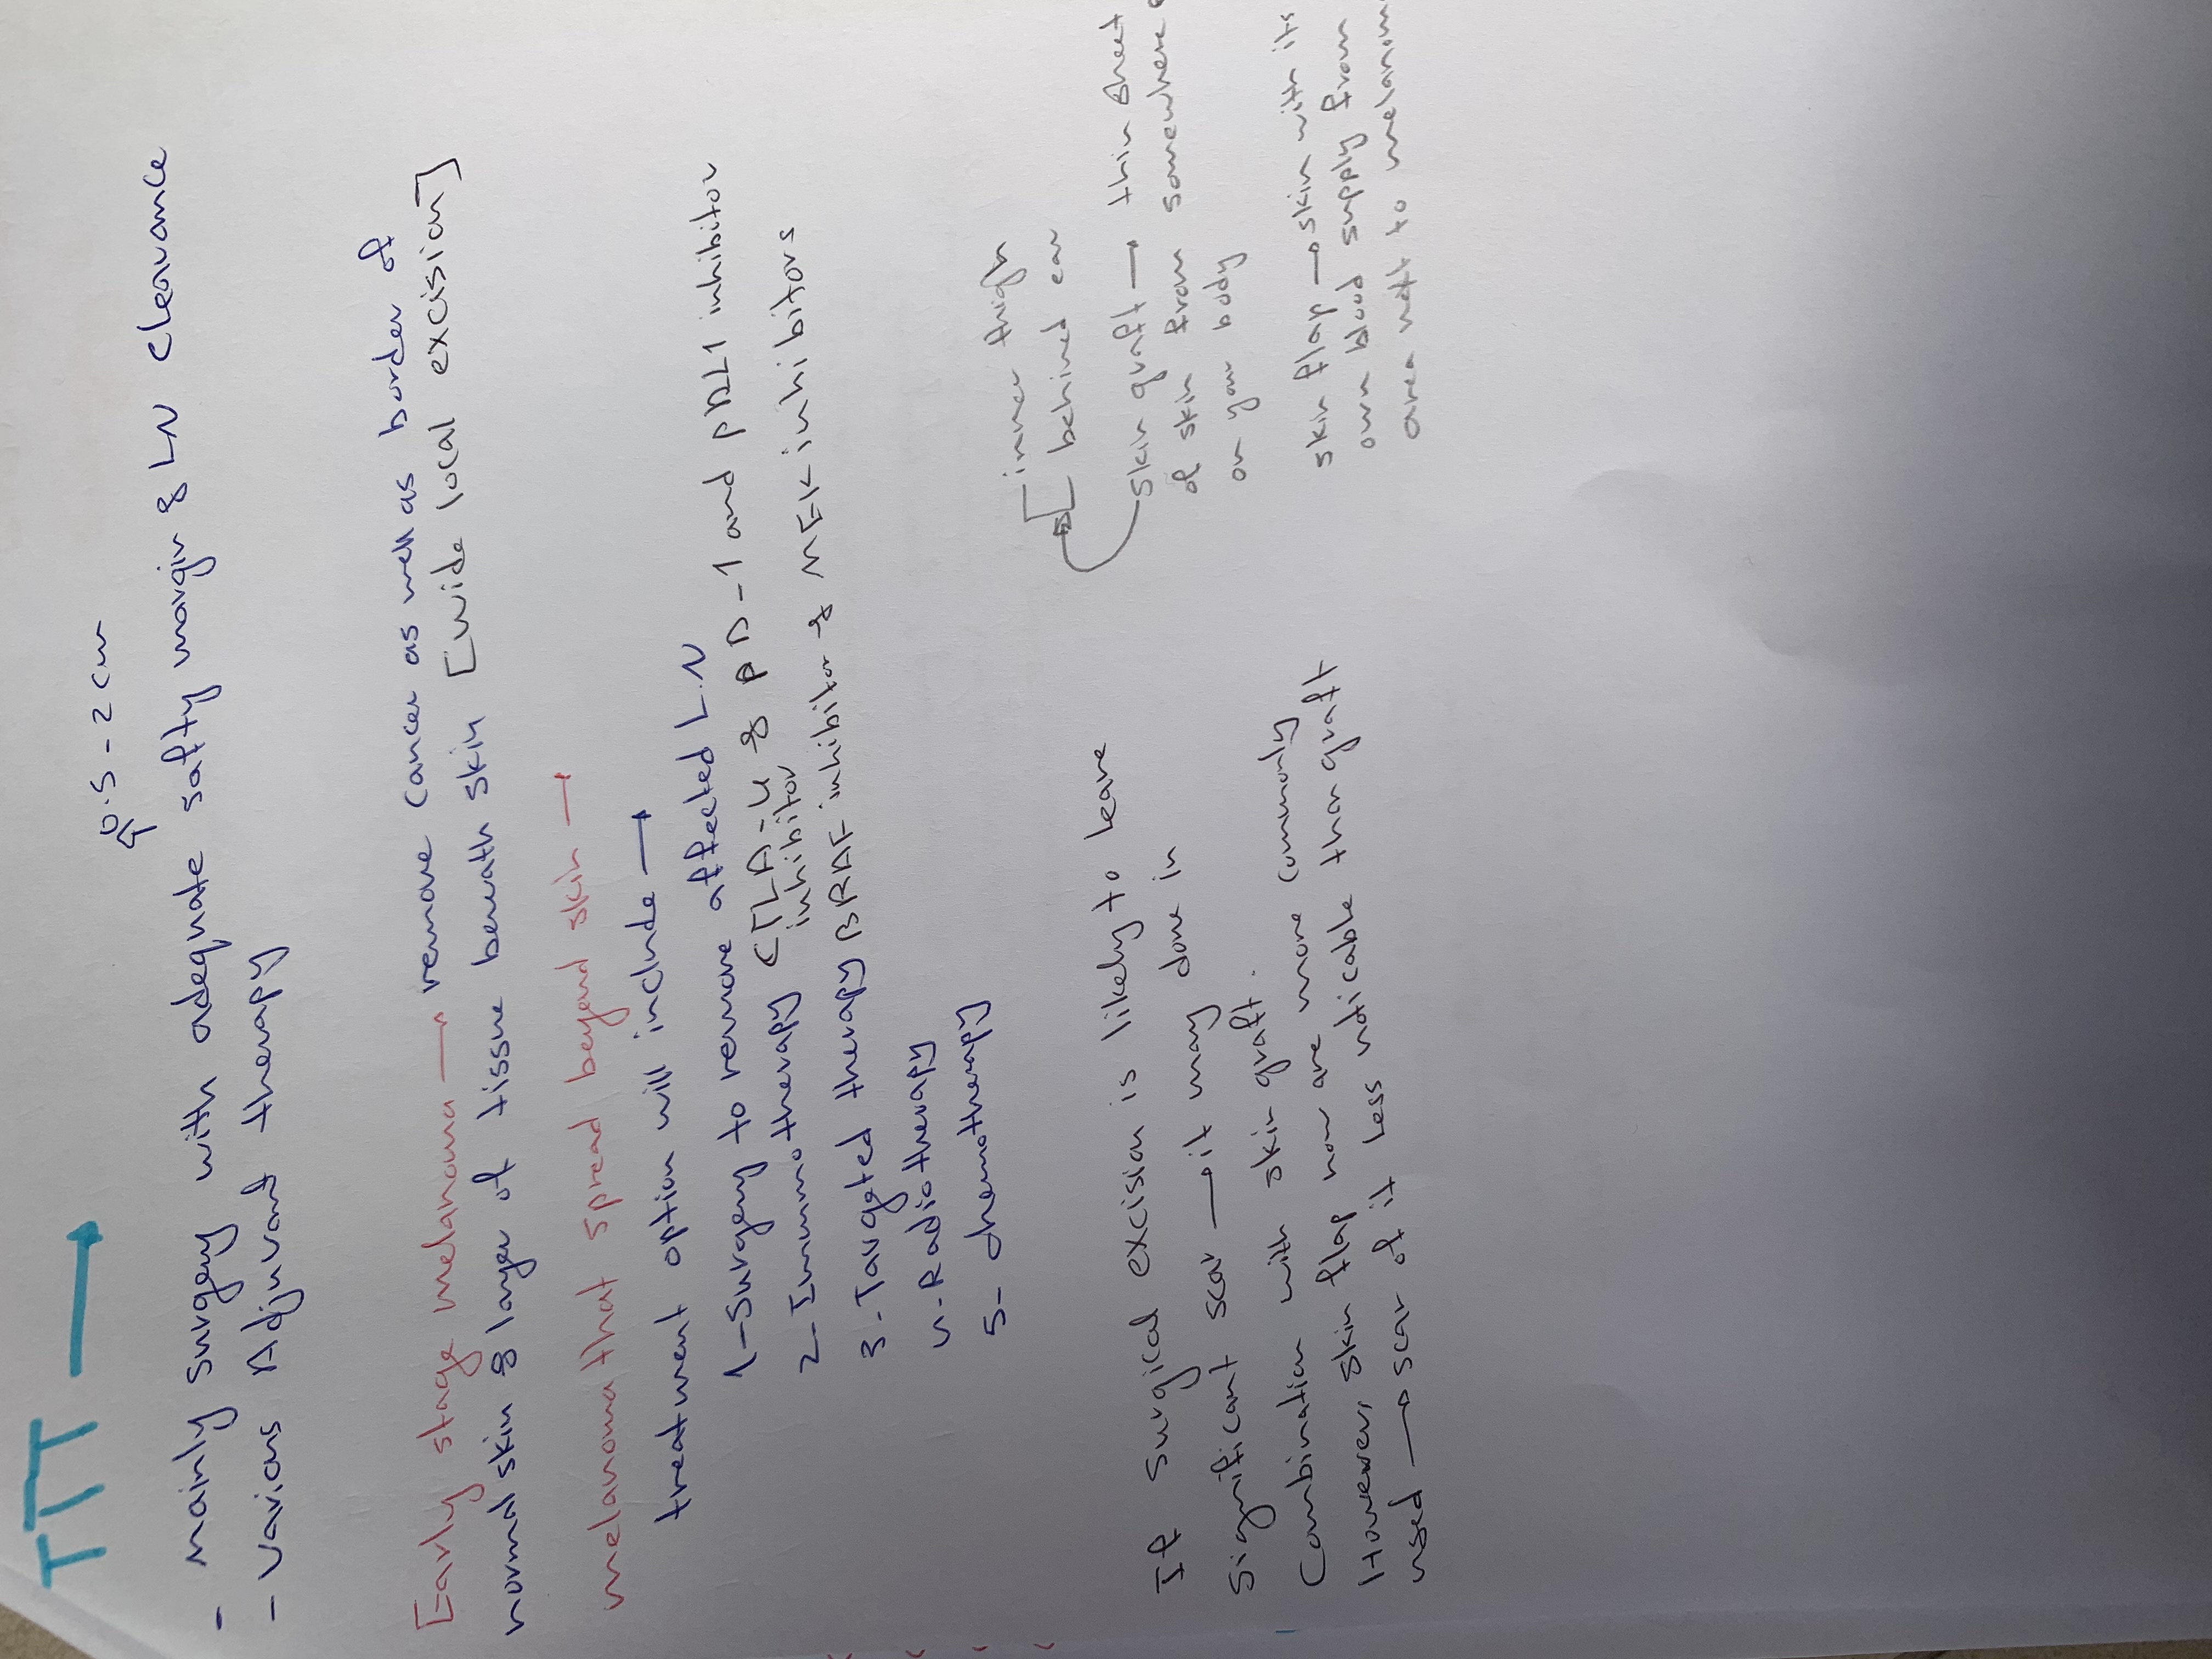 TTT →
0.5 - 2 cm
- mainly surgery with adequate safty margin & LN clearance
- various Adjuvant therapy
Early stage melanoma → remove cancer as well as border of
normal skin & layer of tissue beneath skin [wide local excision]
melanoma that spread beyond skin →
treatment option will include →
1- Surgery to remove affected L.N
2- Immunotherapy CTLA-4 & PD-1 and PDL1 inhibitor
inhibitor
3- Targeted therapy BRAF inhibitor & MEK inhibitors
4- Radiotherapy
5- chemotherapy
inner thigh
behined ear
skin graft → thin sheet
of skin from somewhere
on your body
skin flap → skin with its
own blood supply from
area next to
If surgical excision is likely to leave
significant scar → it may done in
Combination with skin graft.
However, skin flap now are more commonly
used → scar of it less noticable than graft